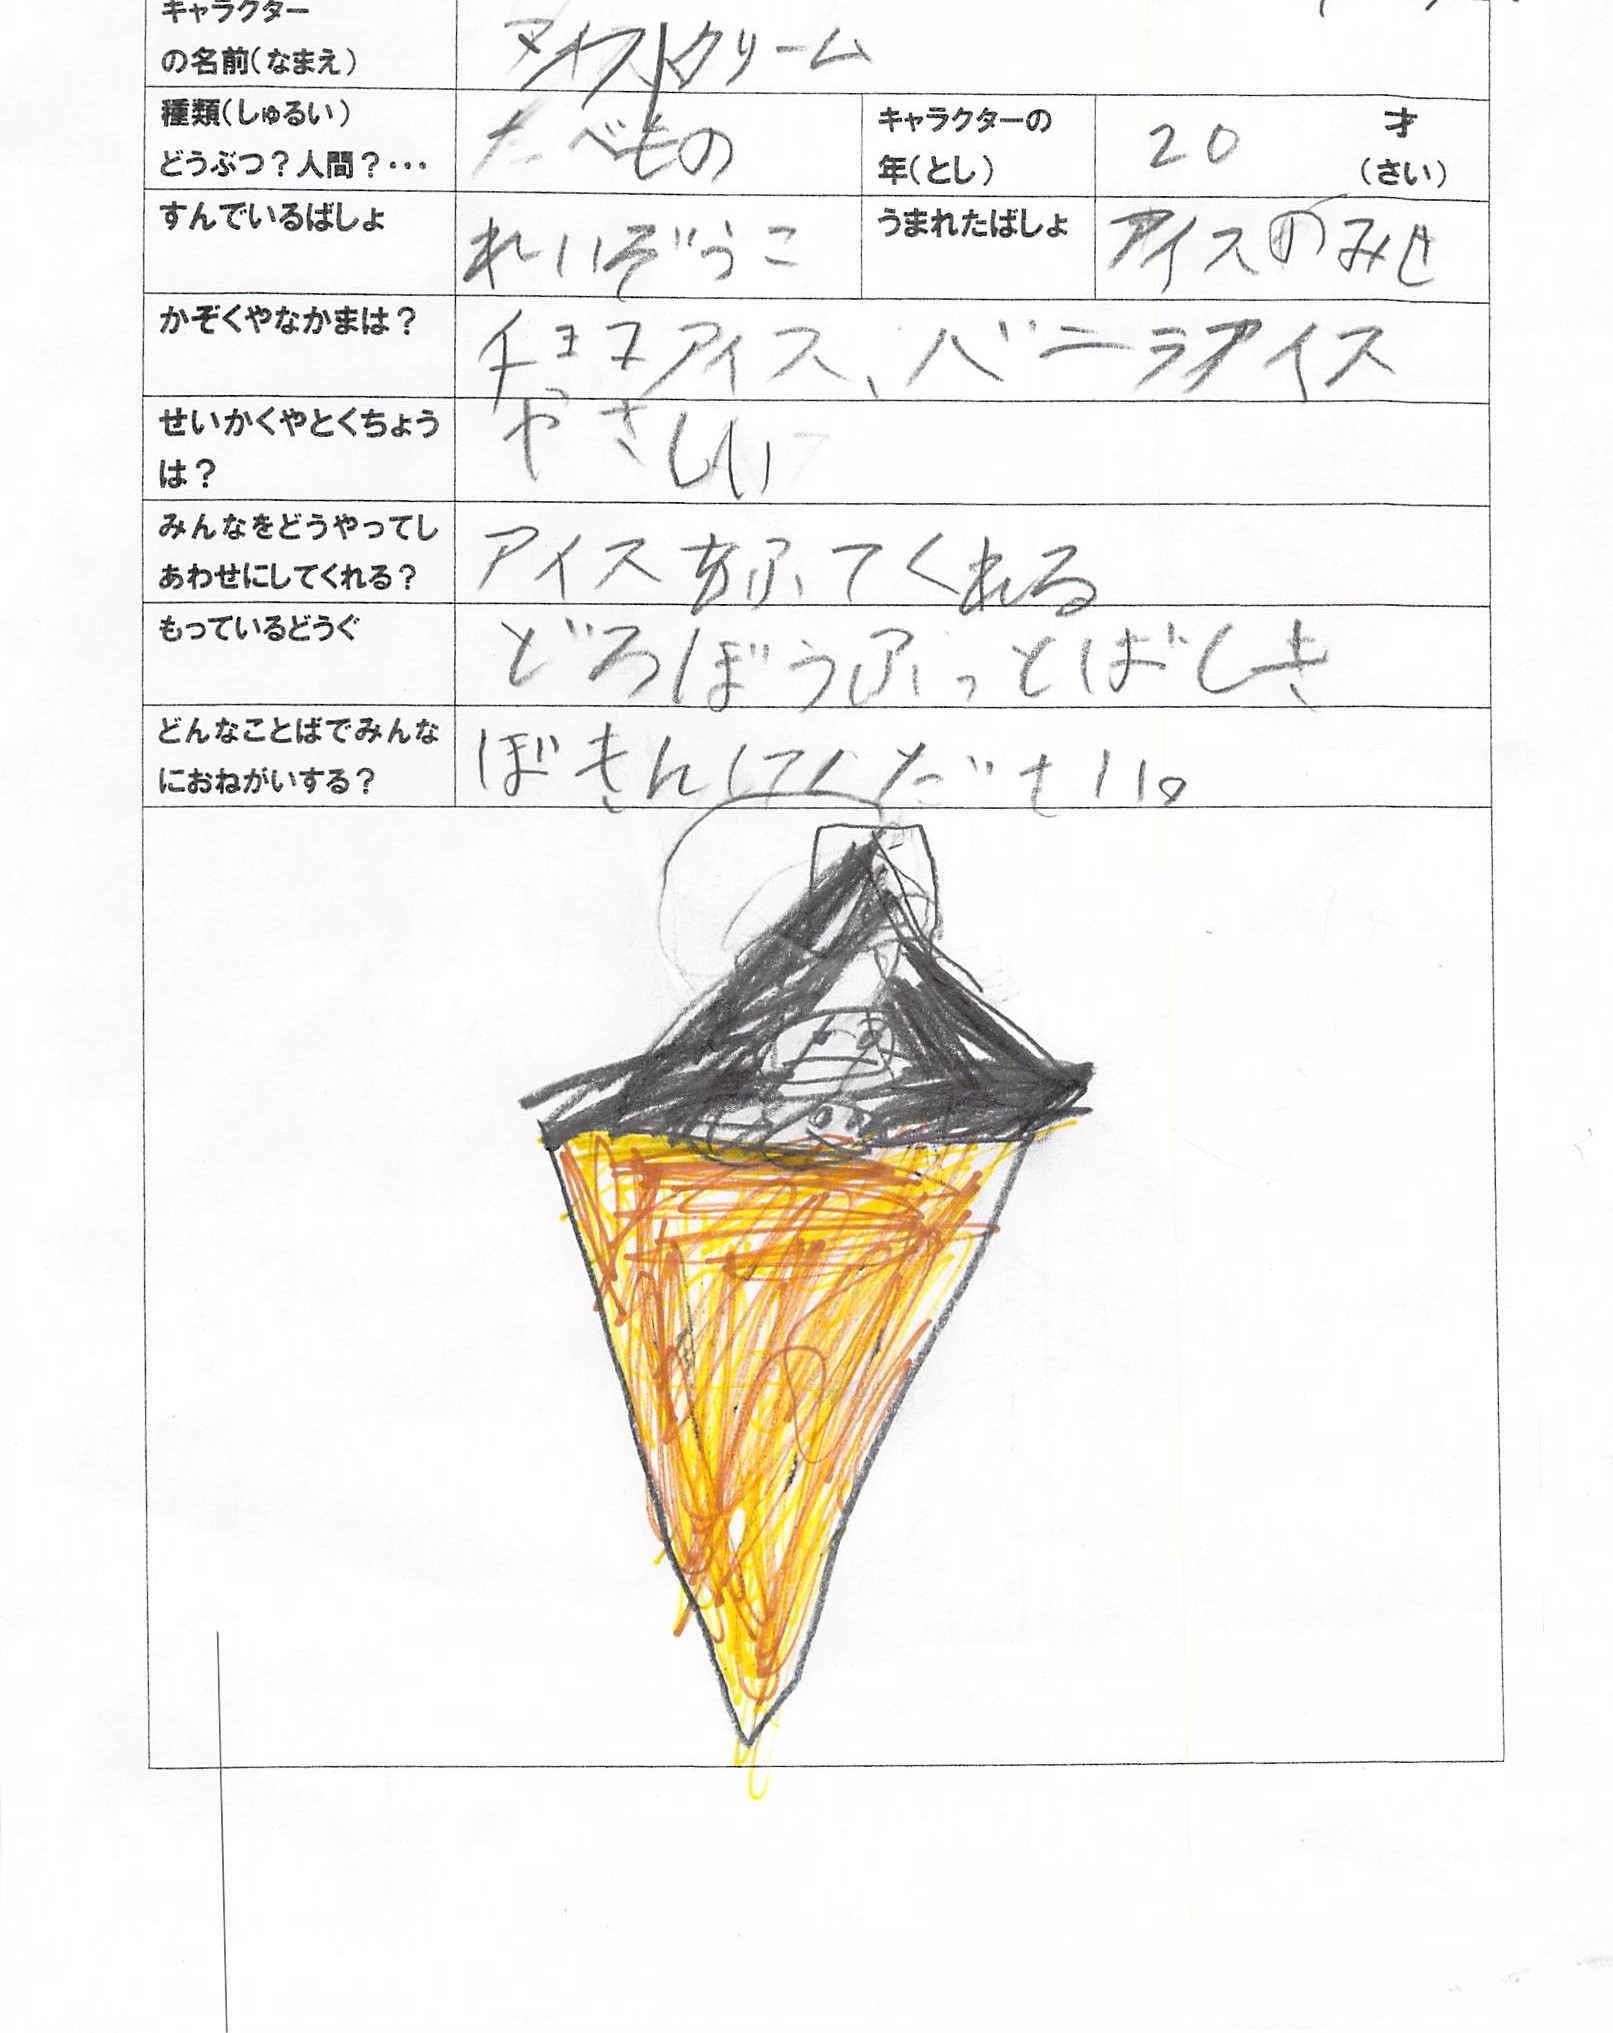 キャラクター
の名前(なまえ)
アイスクリーム
種類(しゅるい)
どうぶつ?人間?・・・
たべもの
キャラクターの
年(とし)
20
才
(さい)
すんでいるばしょ
れいぞうこ
うまれたばしょ
アイスのみせ
かぞくやなかまは?
チョコアイス、バニラアイス
せいかくやとくちょう
は?
やさしい
みんなをどうやってし
あわせにしてくれる?
アイス
てくれる
もっているどうぐ
どろぼうふっとばしき
どんなことばでみんな
におねがいする?
ぼきんしてください。